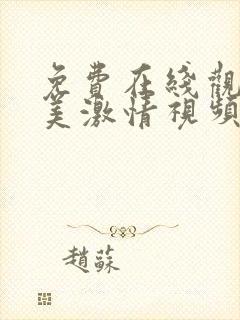 免費在綫觀
美激情視頻
趙蘇